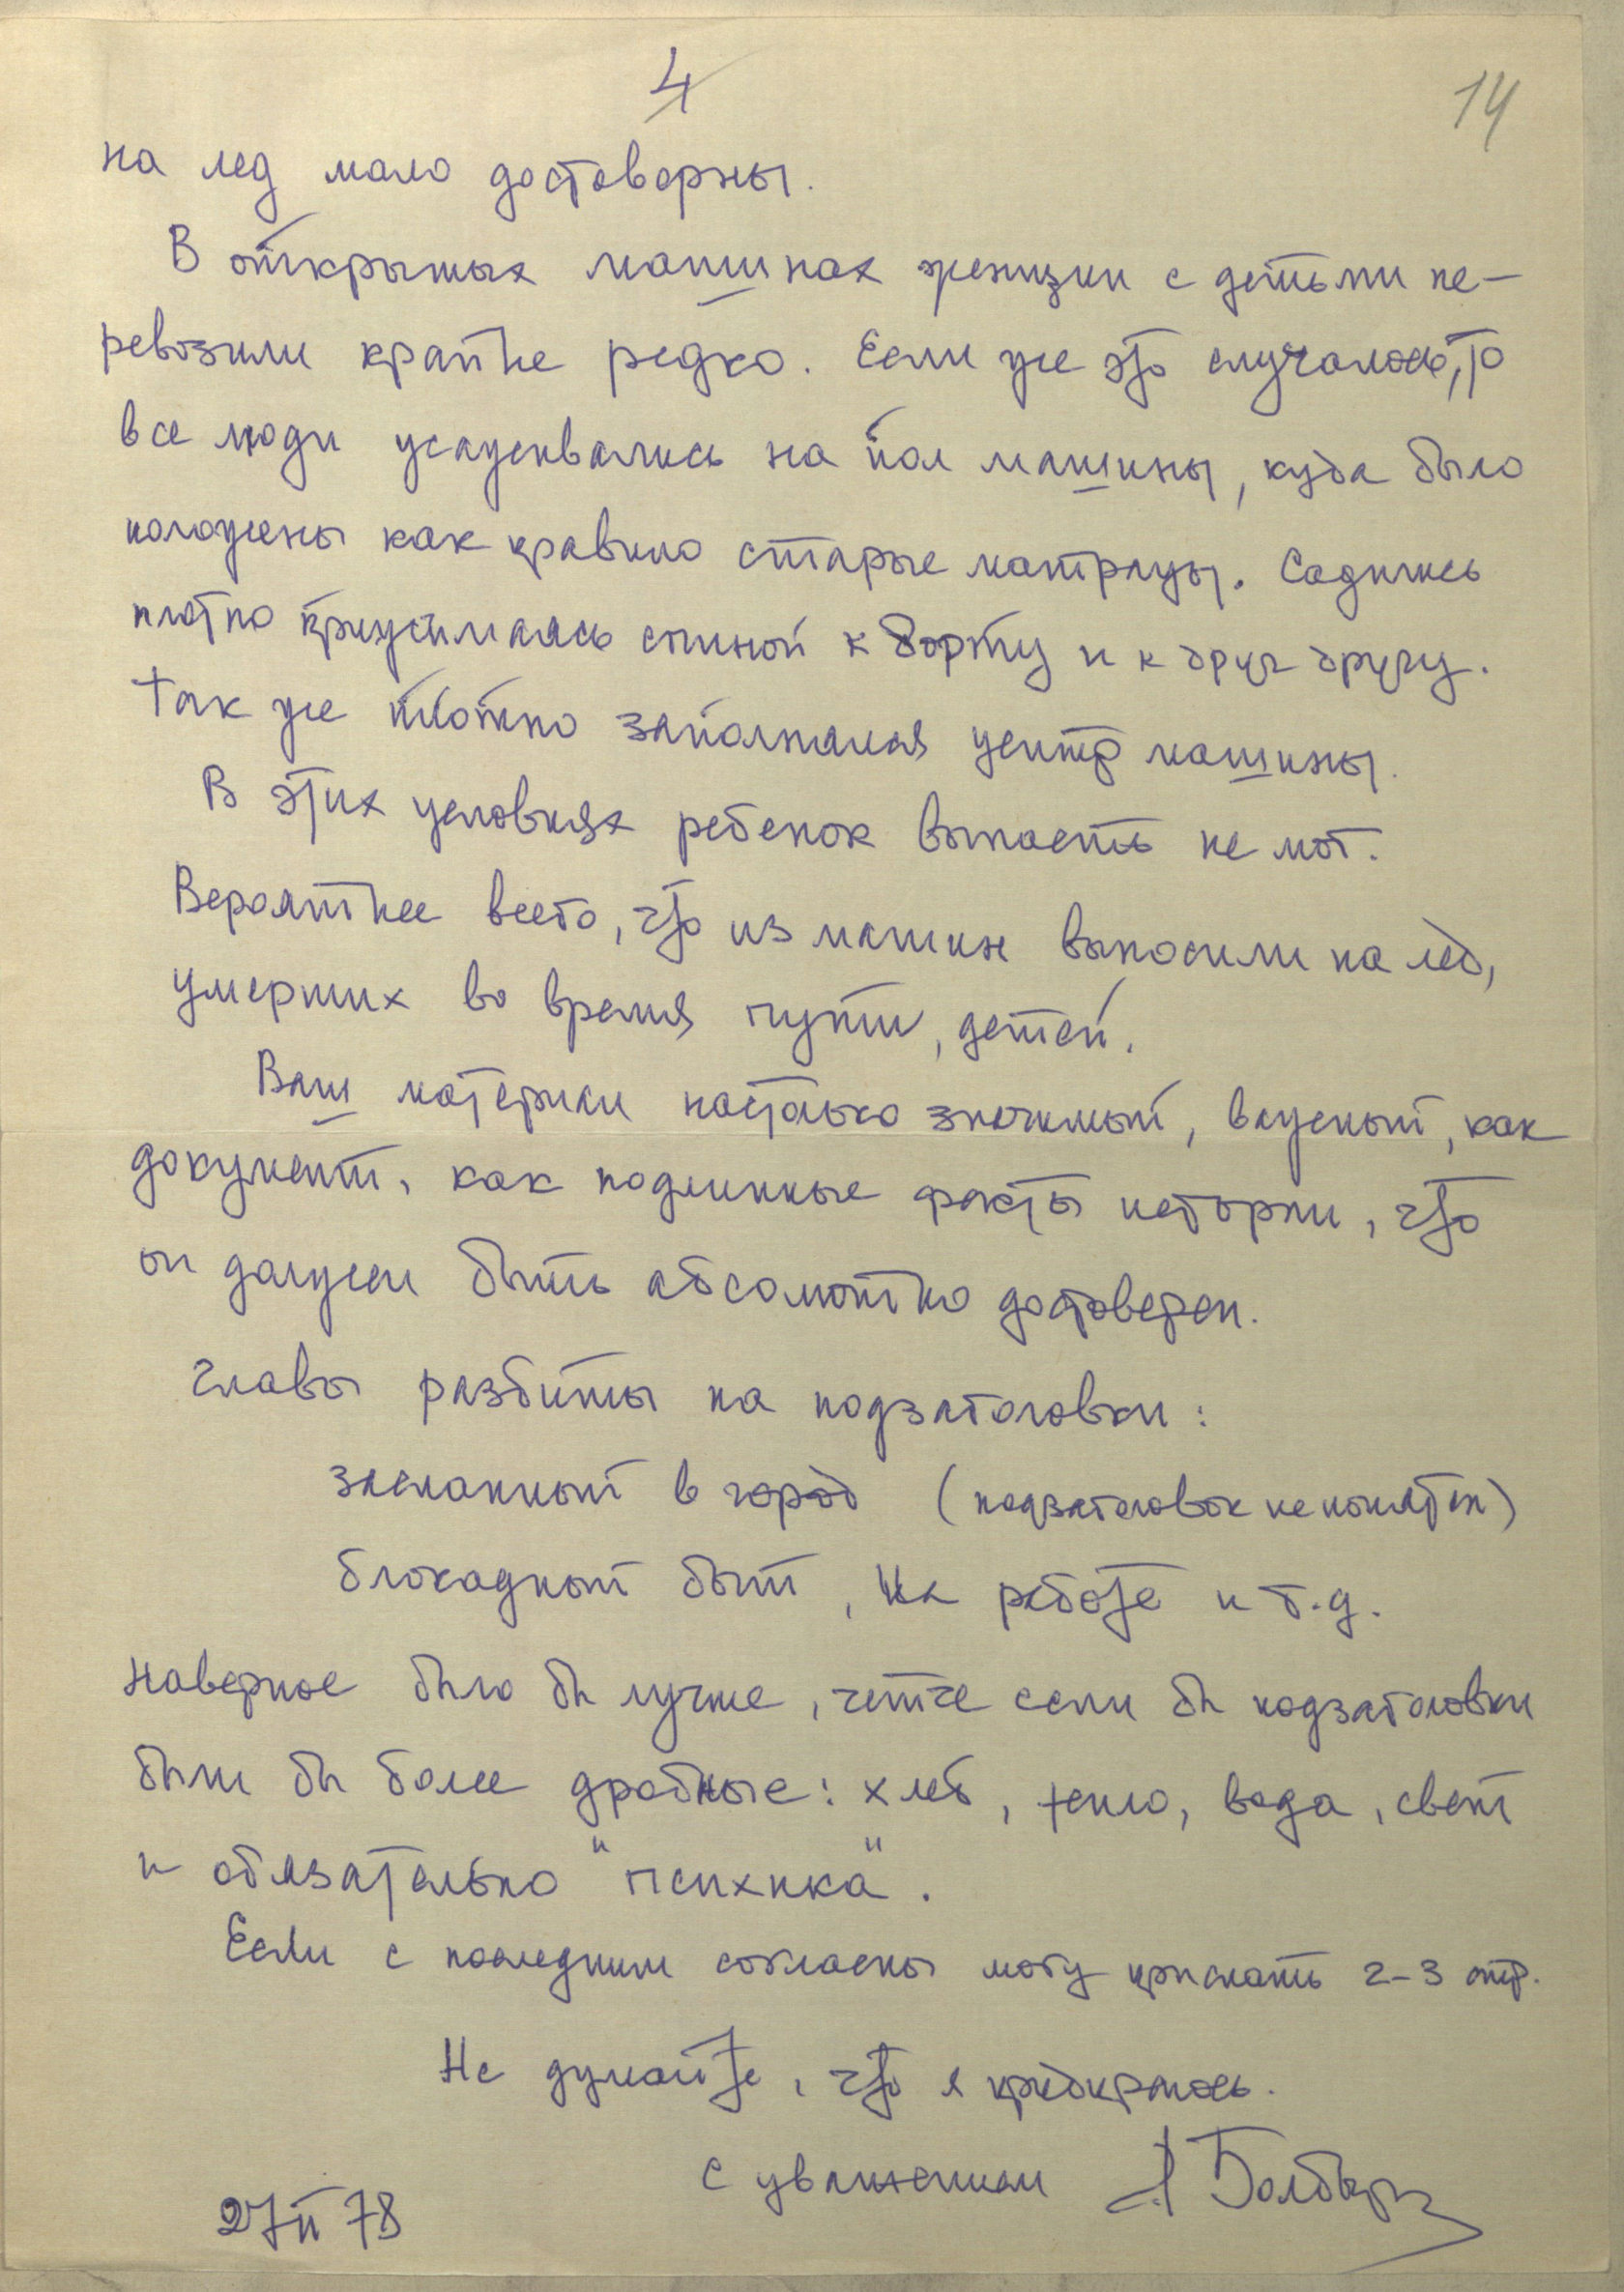 4
14
на лед мало достоверны.
В открытых машинах женщин с детьми пе-
ревозили крайне редко. Если уже это случалось, то
все люди усаживались на пол машины, куда было
положены как правило старые матрацы. Садились
плотно прижимаясь спиной к борту и к друг другу.
Так же плотно заполнялся центр машины.
В этих условиях ребенок выпасть не мог.
Вероятнее всего, что из машин выносили на лед,
умерших во время пути, детей.
Ваш материал настолько значимый, вкусный, как
документ, как подлинные факты истории, что
он должен быть абсолютно достоверен.
Главы разбиты на подзаголовки:
засланный в город (подзаголовок не понятен)
блокадный быт, На работе и т.д.
Наверное было бы лучше, четче если бы подзаголовки
были бы более дробные: хлеб, тепло, вода, свет
и обязательно "психика".
Если с последним согласны могу прислать 2-3 стр.
Не думайте, что я придираюсь.
С уважением
27 II 78